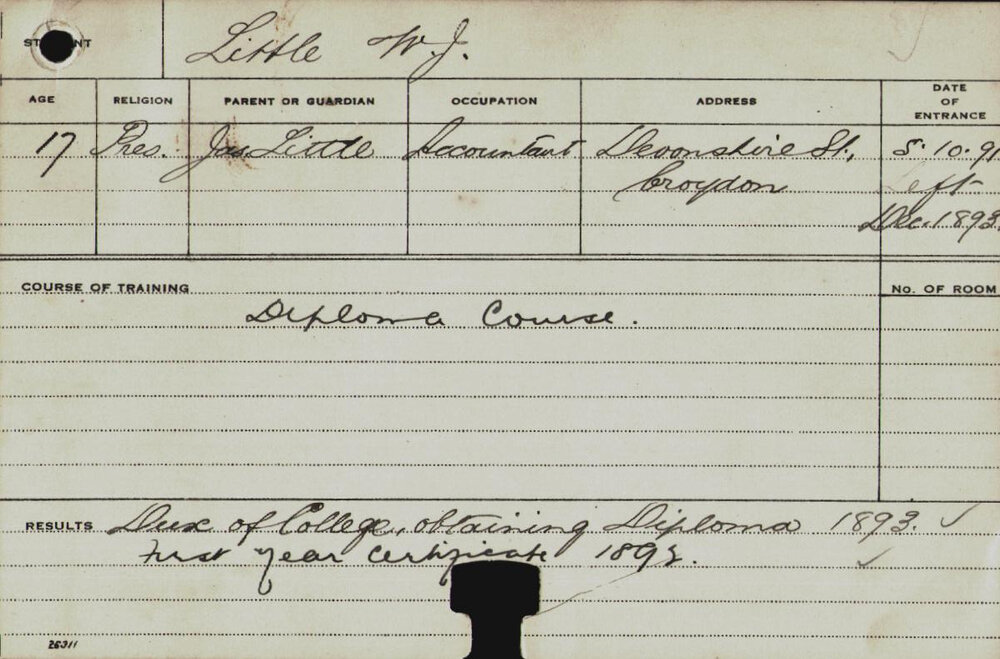 STUDENT Little W. J.
AGE RELIGION PARENT OR GUARDIAN OCCUPATION ADDRESS DATE OF ENTRANCE
17 Pres. Jas. Little Accountant Devonshire St., 5.10.91
Croydon Left
Dec. 1893.
COURSE OF TRAINING No. OF ROOM
Diploma Course.
RESULTS Dux of College, obtaining Diploma 1893. ✓
First year certificate 1892. ✓